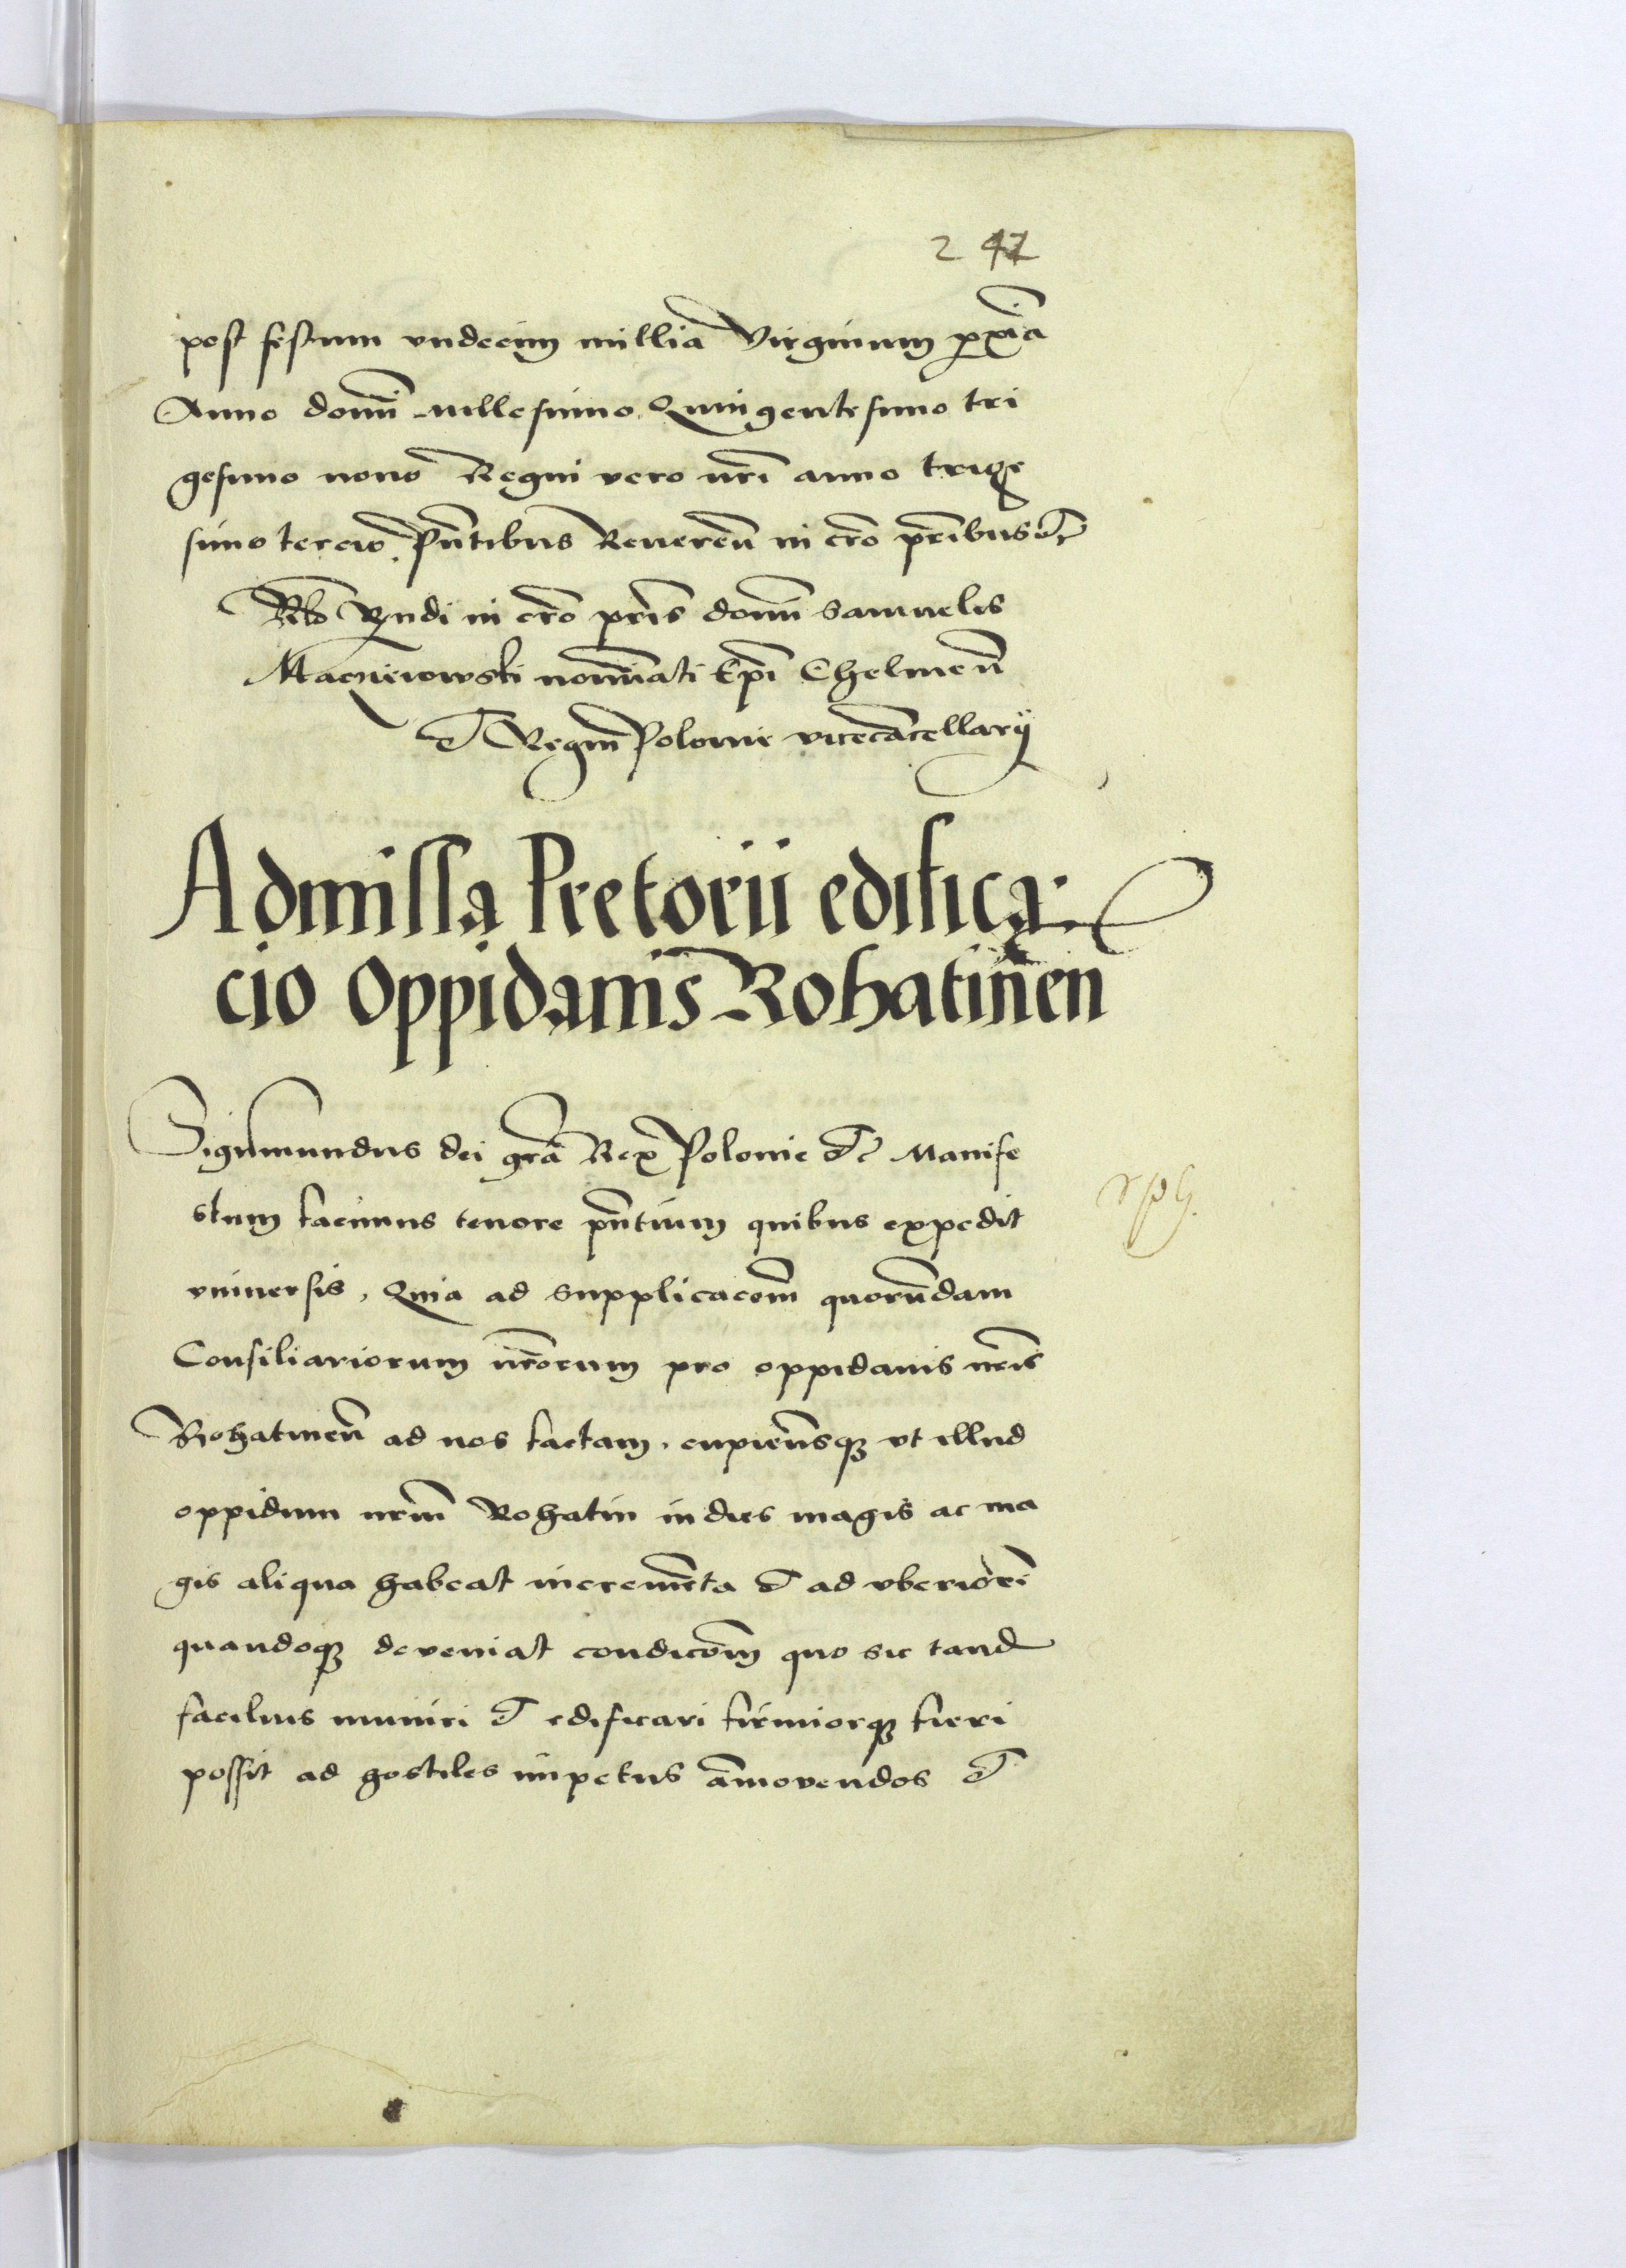 247
post festum vndecim millia Virginum pxia
Anno domi millesimo Quingentesimo tri
gesimo nono Regni vero nri anno trige
simo tercio. Pntibus Reueren in cro pribus etc
Rlo Rndi in cro pris domi Samuelis
Macieiowski nominati Epi Chelmen
et Regni Polonie vicecacellarij
Admissa Pretorii edifica
cio Oppidanis Rohatinen
Sigismundus dei gra Rex Polonie etc Manife
stum facimus tenore pntium quibus expedit
vniuersis, Quia ad supplicacom quorundam
Consiliariorum nrorum pro oppidanis nris
Rohatinen ad nos factam, cupiensque vt illud
oppidum nrm Rohatin in dies magis ac ma
gis aliqua habeat incrementa et ad vberiore
quandoque deveniat condicom quo sic tand
facilius muniri et edificari firmiorque fieri
possit ad hostiles impetus amovendos et